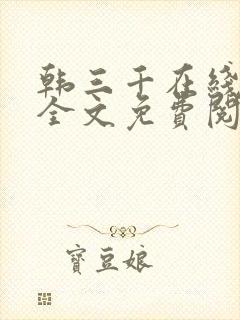 韩三千在线
全文免費閱
寶豆娘